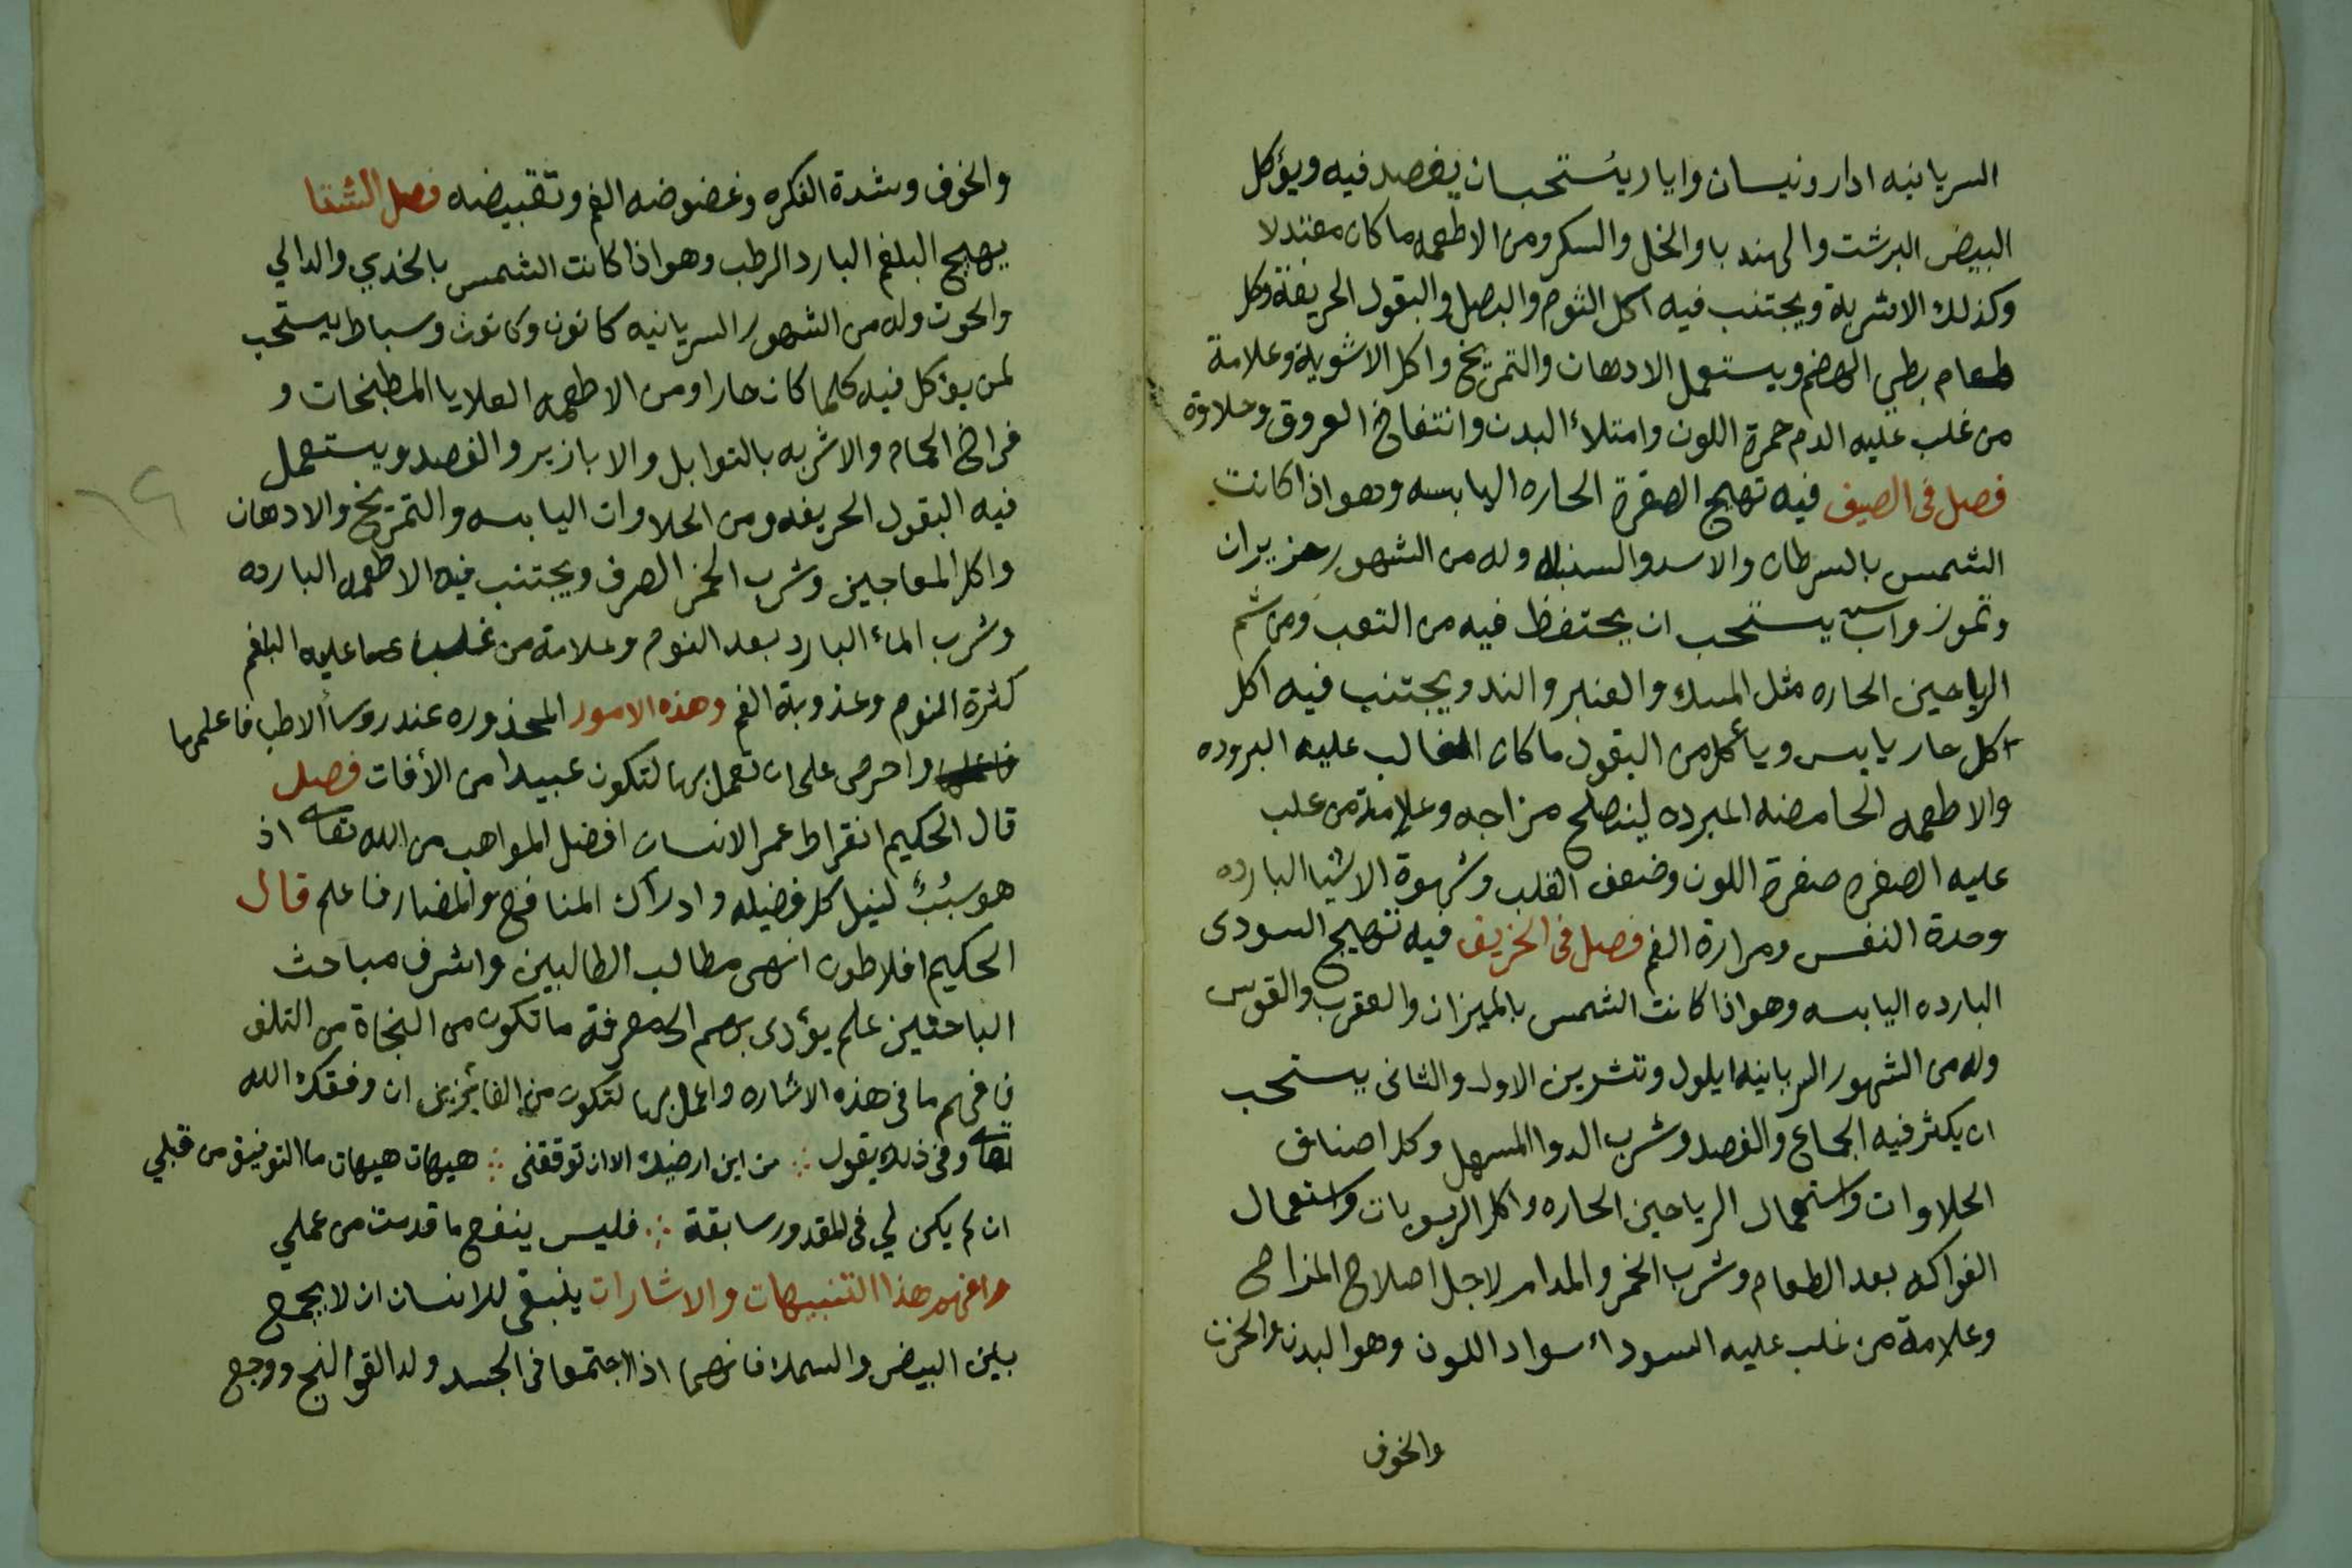 السريانيه ادار ونيسان وايار يستحب ان يفصد فيه ويؤكل
البيض البرشت والهندبا والخل والسكر ومن الاطعمه ما كان معتدلا
وكذلك الاشربة ويجتنب فيه اكل الثوم والبصل والبقول الحريفة وكل
طعام بطي الهضم ويستعمل الادهان والتمريخ واكل الاشوية وعلامة
من غلب عليه الدم حمرة اللون وامتلاء البدن وانتفاخ العروق وحلاوة
فصل فى الصيف فيه تهيج الصفرة الحاره اليابسه وهو اذا كانت
الشمس بالسرطان والاسد والسنبله وله من الشهور حزيران
وتموز واب يستحب ان يحتفظ فيه من التعب ومن شم
الرياحين الحاره مثل المسك والعنبر والند ويجتنب فيه اكل
اكل حار يابس ويأكل من البقول ما كان الغالب عليه البروده
والاطعمه الحامضه المبرده لينصلح مزاجه وعلامة من غلب
عليه الصفره صفرة اللون وضعف القلب وشهوة الاشيا البارده
وحدة النفس ومرارة الفم فصل فى الخريف فيه تهيج السودى
البارده اليابسه وهو اذا كانت الشمس بالميزان والعقرب والقوس
وله من الشهور السريانيه ايلول وتشرين الاول والثانى يستحب
ان يكثر فيه الجماع والفصد وشرب الدوا المسهل وكل اصناف
الحلاوات واستعمال الرياحين الحاره واكل الربوبات واستعمال
الفواكه بعد الطعام وشرب الخمر والمدام لاجل اصلاح المزاج
وعلامة من غلب عليه السوداء سواد اللون وهو البدن والحزن
والخوف
والخوف وشدة الفكره وغضوضه الفم وتقبيضه فصل الشتا
يهيج البلغم البارد الرطب وهو اذا كانت الشمس بالجدي والدالي
والحوت وله من الشهور السريانيه كانون وكانون وسباط يستحب
لمن يؤكل فيه كلما كان حارا ومن الاطعمه العلايا المطبخات و
فراخ الحمام والاشربه بالتوابل والابازير والفصد ويستعمل
فيه البقول الحريفه ومن الحلاوات اليابسه والتمريخ والادهان
واكل المعاجين وشرب الخمر الصرف ويجتنب فيه الاطعمه البارده
وشرب الماء البارد بعد النوم وعلامة من غلب عليه البلغم
كثرة النوم وعذوبة الفم وهذه الامور المحذوره عند روساء الاطبا فاعلمها
واحرص على ان تعمل بها لتكون عبيدا من الأفات فصل
قال الحكيم انقراط عمر الانسان افضل المواهب من الله تعالى اذ
هو سبب لنيل كل فضيله وادراك المنافع والمضار فاعلم قال
الحكيم افلاطون انهى مطالب الطالبين واشرف مباحث
الباحثين علم يؤدى بهم الى معرفة ما تكون من النجاة من التلف
فافهم ما فى هذه الاشاره واعمل بها لتكون من الفائزين ان وفقك الله
تعالى وفى ذلك يقول ∴ من اين ارضيك الا ان توفقنى ∴ هيهات هيهات ما التوفيق من قبلي
ان لم يكن لي فى المقدور سابقة ∴ فليس ينفع ما قدمت من عملي
وافهم هذا التنبيهات والاشارات ينبغى للانسان ان لا يجمع
بين البيض والسمك فانهما اذا اجتمعا فى الجسد ولد القولنج ووجع